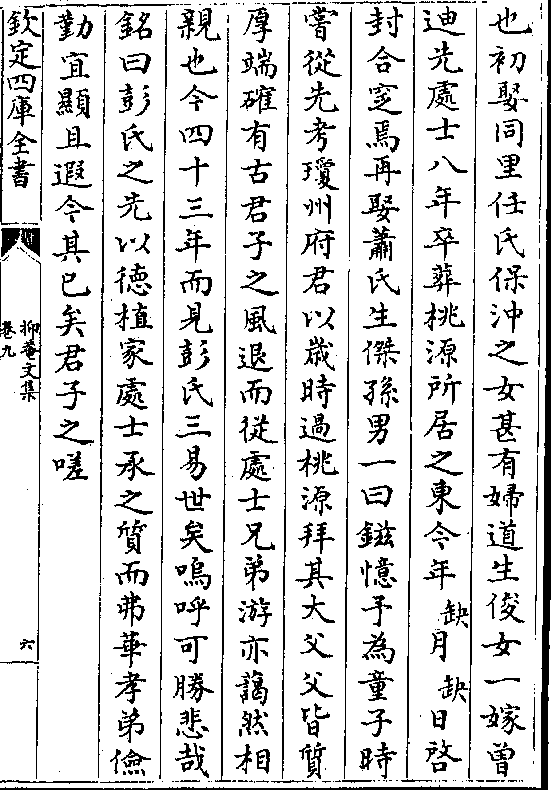 也初娶同里任氏保沖之女甚有婦道生俊女一嫁曾
迪先處士八年卒葬桃源所居之東今年缺月缺日啓
封合窆焉再娶蕭氏生傑孫男一曰鎡憶予為童子時
嘗從先考瓊州府君以歲時過桃源拜其大父父皆質
厚端確有古君子之風退而從處士兄弟游亦藹然相
親也今四十三年而見彭氏三易世矣嗚呼可勝悲哉
銘曰彭氏之先以德植家處士承之質而弗華孝弟儉
勤宜顯且遐今其已矣君子之嗟
欽定四庫全書
抑菴文集
卷九
六